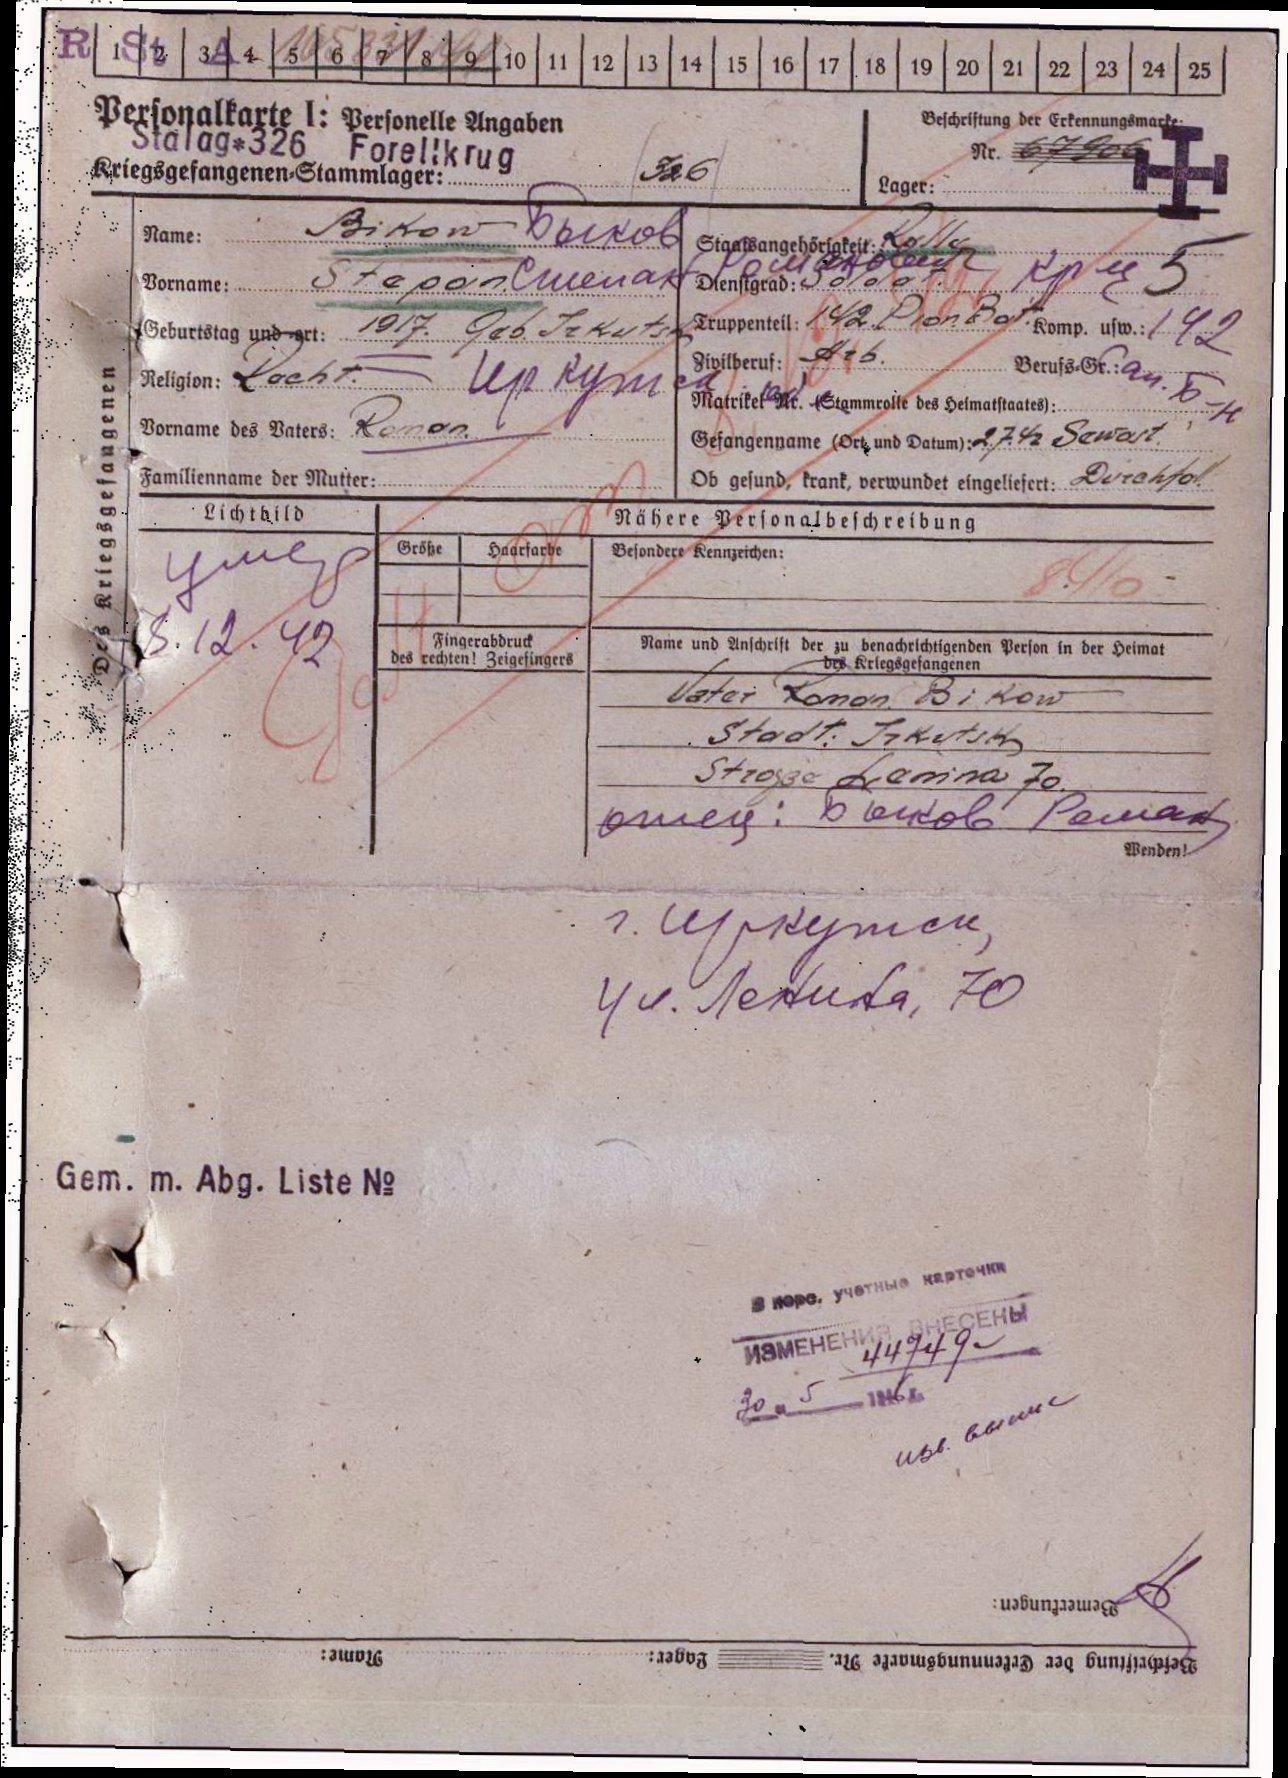 R St A
1 2 3 4 5 6 7 8 9 10 11 12 13 14 15 16 17 18 19 20 21 22 23 24 25
Personalkarte I: Personelle Angaben
Beschriftung der Erkennungsmarke:
Stalag*326 Forellkrug
Nr. 67906
Kriegsgefangenen-Stammlager: 326
Lager:
Des Kriegsgefangenen
Name: Bikow Быков
Staatsangehörigkeit:
Vorname: Stepan Степан Романович
Dienstgrad: Soldat кр-ц 5
Geburtstag und -ort: 1917. Geb. Irkutsk
Truppenteil: 142. Pion. Bat. Komp. usw.: 142
Иркутск
Zivilberuf: Arb. Berufs-Gr.: сап. б-н
Religion:
Matrikel Nr. (Stammrolle des Heimatstaates):
Vorname des Vaters: Roman
Gefangenname (Ort und Datum): 2.7.42 Sewast.
Familienname der Mutter:
Ob gesund, krank, verwundet eingeliefert:
Lichtbild
Nähere Personalbeschreibung
Größe Haarfarbe Besondere Kennzeichen:
умер
8.12.42
Fingerabdruck
des rechten! Zeigefingers
Name und Anschrift der zu benachrichtigenden Person in der Heimat
des Kriegsgefangenen
Vater Roman Bikow
Stadt. Irkutsk
Lenina 70
отец: Быков Роман
Wenden!
г. Иркутск,
ул. Ленина, 70
Gem. m. Abg. Liste №
В перс. учетные карточки
ИЗМЕНЕНИЯ ВНЕСЕНЫ
44949
30 5 194 г.
Bemerkungen:
Beschriftung der Erkennungsmarke Nr. Lager: Name: